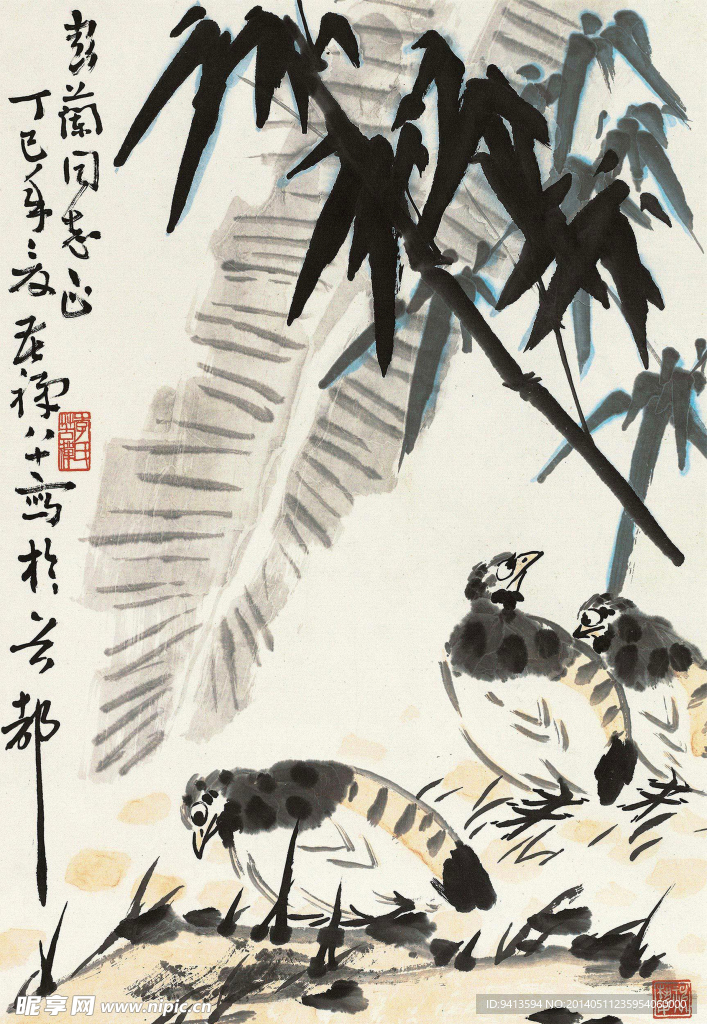 彭蘭同志正
丁巳年之夏苦禪八十寫於京都
李氏苦禪
昵享网 www.nipic.cn
ID:9413594 NO:20140511235954060000